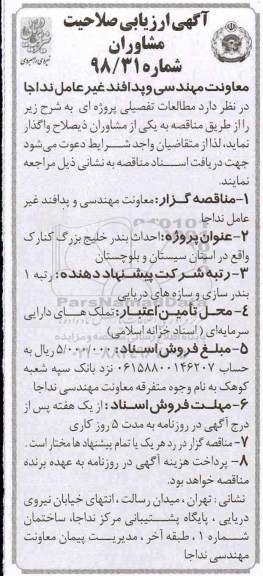 آگهی ارزیابی صلاحیت
مشاوران
شماره ۹۸/۳۱
معاونت مهندسی و پدافند غیر عامل نداجا
در نظر دارد مطالعات تفصیلی پروژه ای به شرح زیر
را از طریق مناقصه به یکی از مشاوران ذیصلاح واگذار
نماید، لذا از متقاضیان واجد شرایط دعوت می‌شود
جهت دریافت اسناد مناقصه به نشانی ذیل مراجعه
نمایند.
۱-مناقصه گزار: معاونت مهندسی و پدافند غیر
عامل نداجا
۲-عنوان پروژه: احداث بندر خلیج بزرگ کنارک
واقع در استان سیستان و بلوچستان
۳-رتبه شرکت پیشنهاد دهنده: رتبه ۱
بندر سازی و سازه های دریایی
۴-محل تامین اعتبار: تملک های دارایی
سرمایه‌ای (اسناد خزانه اسلامی)
۵-مبلغ فروش اسناد: ۵/۰۰۰/۰۰۰ ریال به
حساب ۰۶۱۵۸۸۰۰۱۴۶۲۰۷ نزد بانک سپه شعبه
کوهک به نام وجوه متفرقه معاونت مهندسی نداجا
۶-مهلت فروش اسناد: از یک هفته پس از
درج آگهی در روزنامه به مدت ۵ روز کاری
۷-مناقصه گزار در رد هر یک یا تمام پیشنهاد ها مختار است.
۸- پرداخت هزینه آگهی در روزنامه به عهده برنده
مناقصه خواهد بود.
نشانی: تهران، میدان رسالت، انتهای خیابان نیروی
دریایی، پایگاه پشتیبانی مرکز نداجا، ساختمان
شماره ۱، طبقه آخر، مدیریت پیمان معاونت
مهندسی نداجا